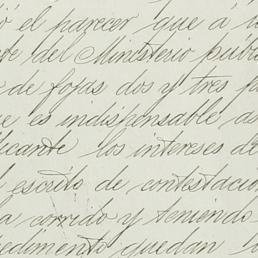 ó el parecer que á l
ve del Ministerio públ
de fojas dos y tres p
ue es indispensable as
licante los intereses de
l escrito de contestació
a corrido y teniendo
edimento quedan l